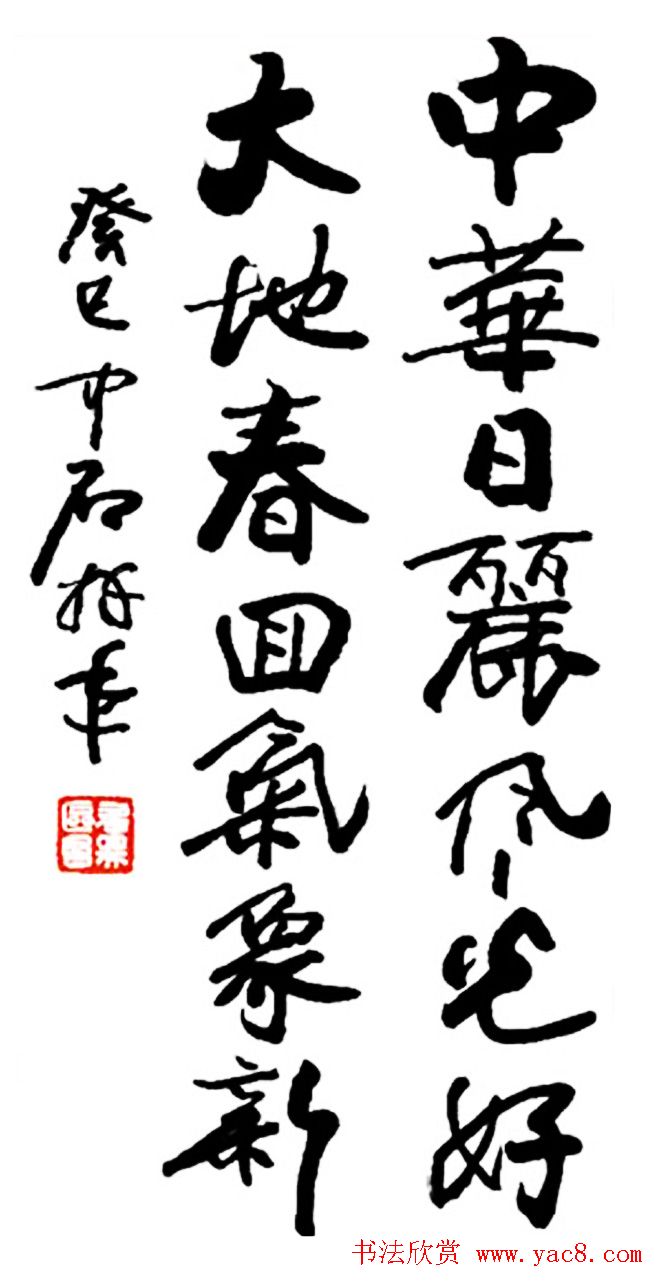 中華日麗風光好
大地春回氣象新
癸巳中石拜年
书法欣赏 www.yac8.com